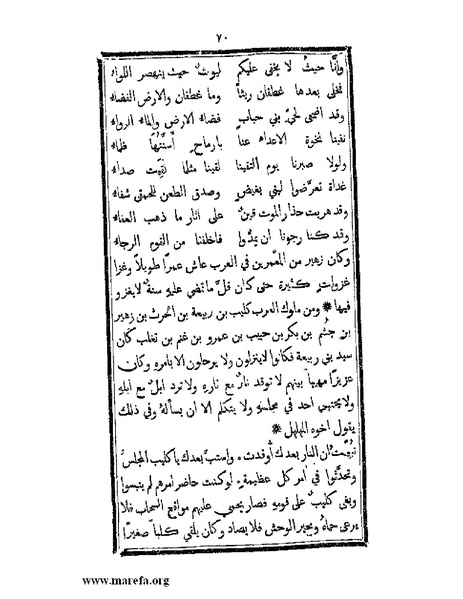 ٧٠
وانَّا حيثُ لا يخفى عليكم ليوثٌ حيث ينهصر اللواء
فخلى بعدها غطفان ريثًا وما غطفان والارض الفضاء
وقد اضحى لحيّ بني حبابٍ فضاء الارض والماء الرواء
نفينا نخوة الاعداء عنا بارماحٍ اسنَّتُها ظماء
ولولا صبرنا يوم التقينا لقينا مثلما لقيت صداء
غداة تعرَّضوا لبني بغيضٍ وصدق الطعن للحمقى شفاء
وقد هربت حذار الموت قينٌ على اثار ما ذهب العفاء
وقد كنا رجونا ان يمدُّوا فاخلفنا من القوم الرجاء
وكان زهير من المعَّمرين في العرب عاش عمرًا طويلاً وغزا
غزواتٍ كثيرة حتى كان قلَّ ما تمضي عليهِ سنةٌ لا يغزو
فيها * ومن ملوك العرب كليب بن ربيعة بن الحرث بن زهير
بن جشُم بن بكر بن حبيب بن عمرو بن غنم بن تغلب كان
سيد بني ربيعة فكانوا لا ينزلون ولا يرحلون الا بامره وكان
عزيزًا مهيبًا بينهم لا توقد نارٌ مع نارهِ ولا ترد ابلٌ مع ابلهِ
ولا يحتبي احد في مجلسهِ ولا يتكلم الا ان يسألهُ وفي ذلك
يقول اخوه المهلهل *
نُبِّئت ان النار بعدك أُوقدت واستبَّ بعدك يا كليب المجلسُ
وتحدَّثوا في امر كل عظيمةٍ لو كنت حاضر امرهم لم ينبسوا
وبغى كليبٌ على قومهِ فصار يحمي عليهم مواقع السحاب فلا
يرعى حماهُ ويجير الوحش فلا يصاد وكان يلقي كلبًا صغيرًا
www.marefa.org